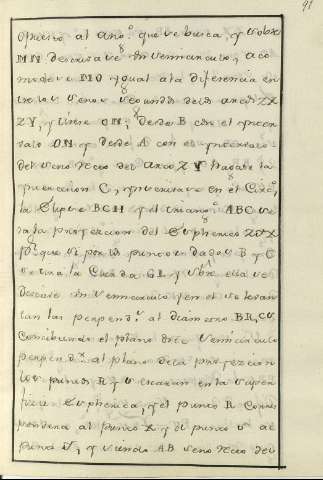 91
opuesto al ang.º que se busca, y sobre
MN descrivase un semicirculo, aco
modese MO ygual a la diferencia en
tre los senos segundos de los arcos ZX
ZY, y tirese ON; desde B con el ynter
valo ON y desde A con el yntervalo
del seno recto del arco ZY hagase la
yntersección C, y
la Elipse BCH y el triang.º ABC se
ra la proyeccion del Spherico ZVX
p.º que si por los puntos dados B y C
se tira la Cuerda GL y sobre ella se
descrive un semicirculo y en el se levan
tan las perpend.s al diametro BR, CV
concibiendo el plano de el semicirculo
perpend.r al plano de la proyeccion
los puntos R y V estaran en la super
ficie Spherica, y el punto R corres
pondera al punto X y el punto V al
punto V, y siendo AB seno recto del